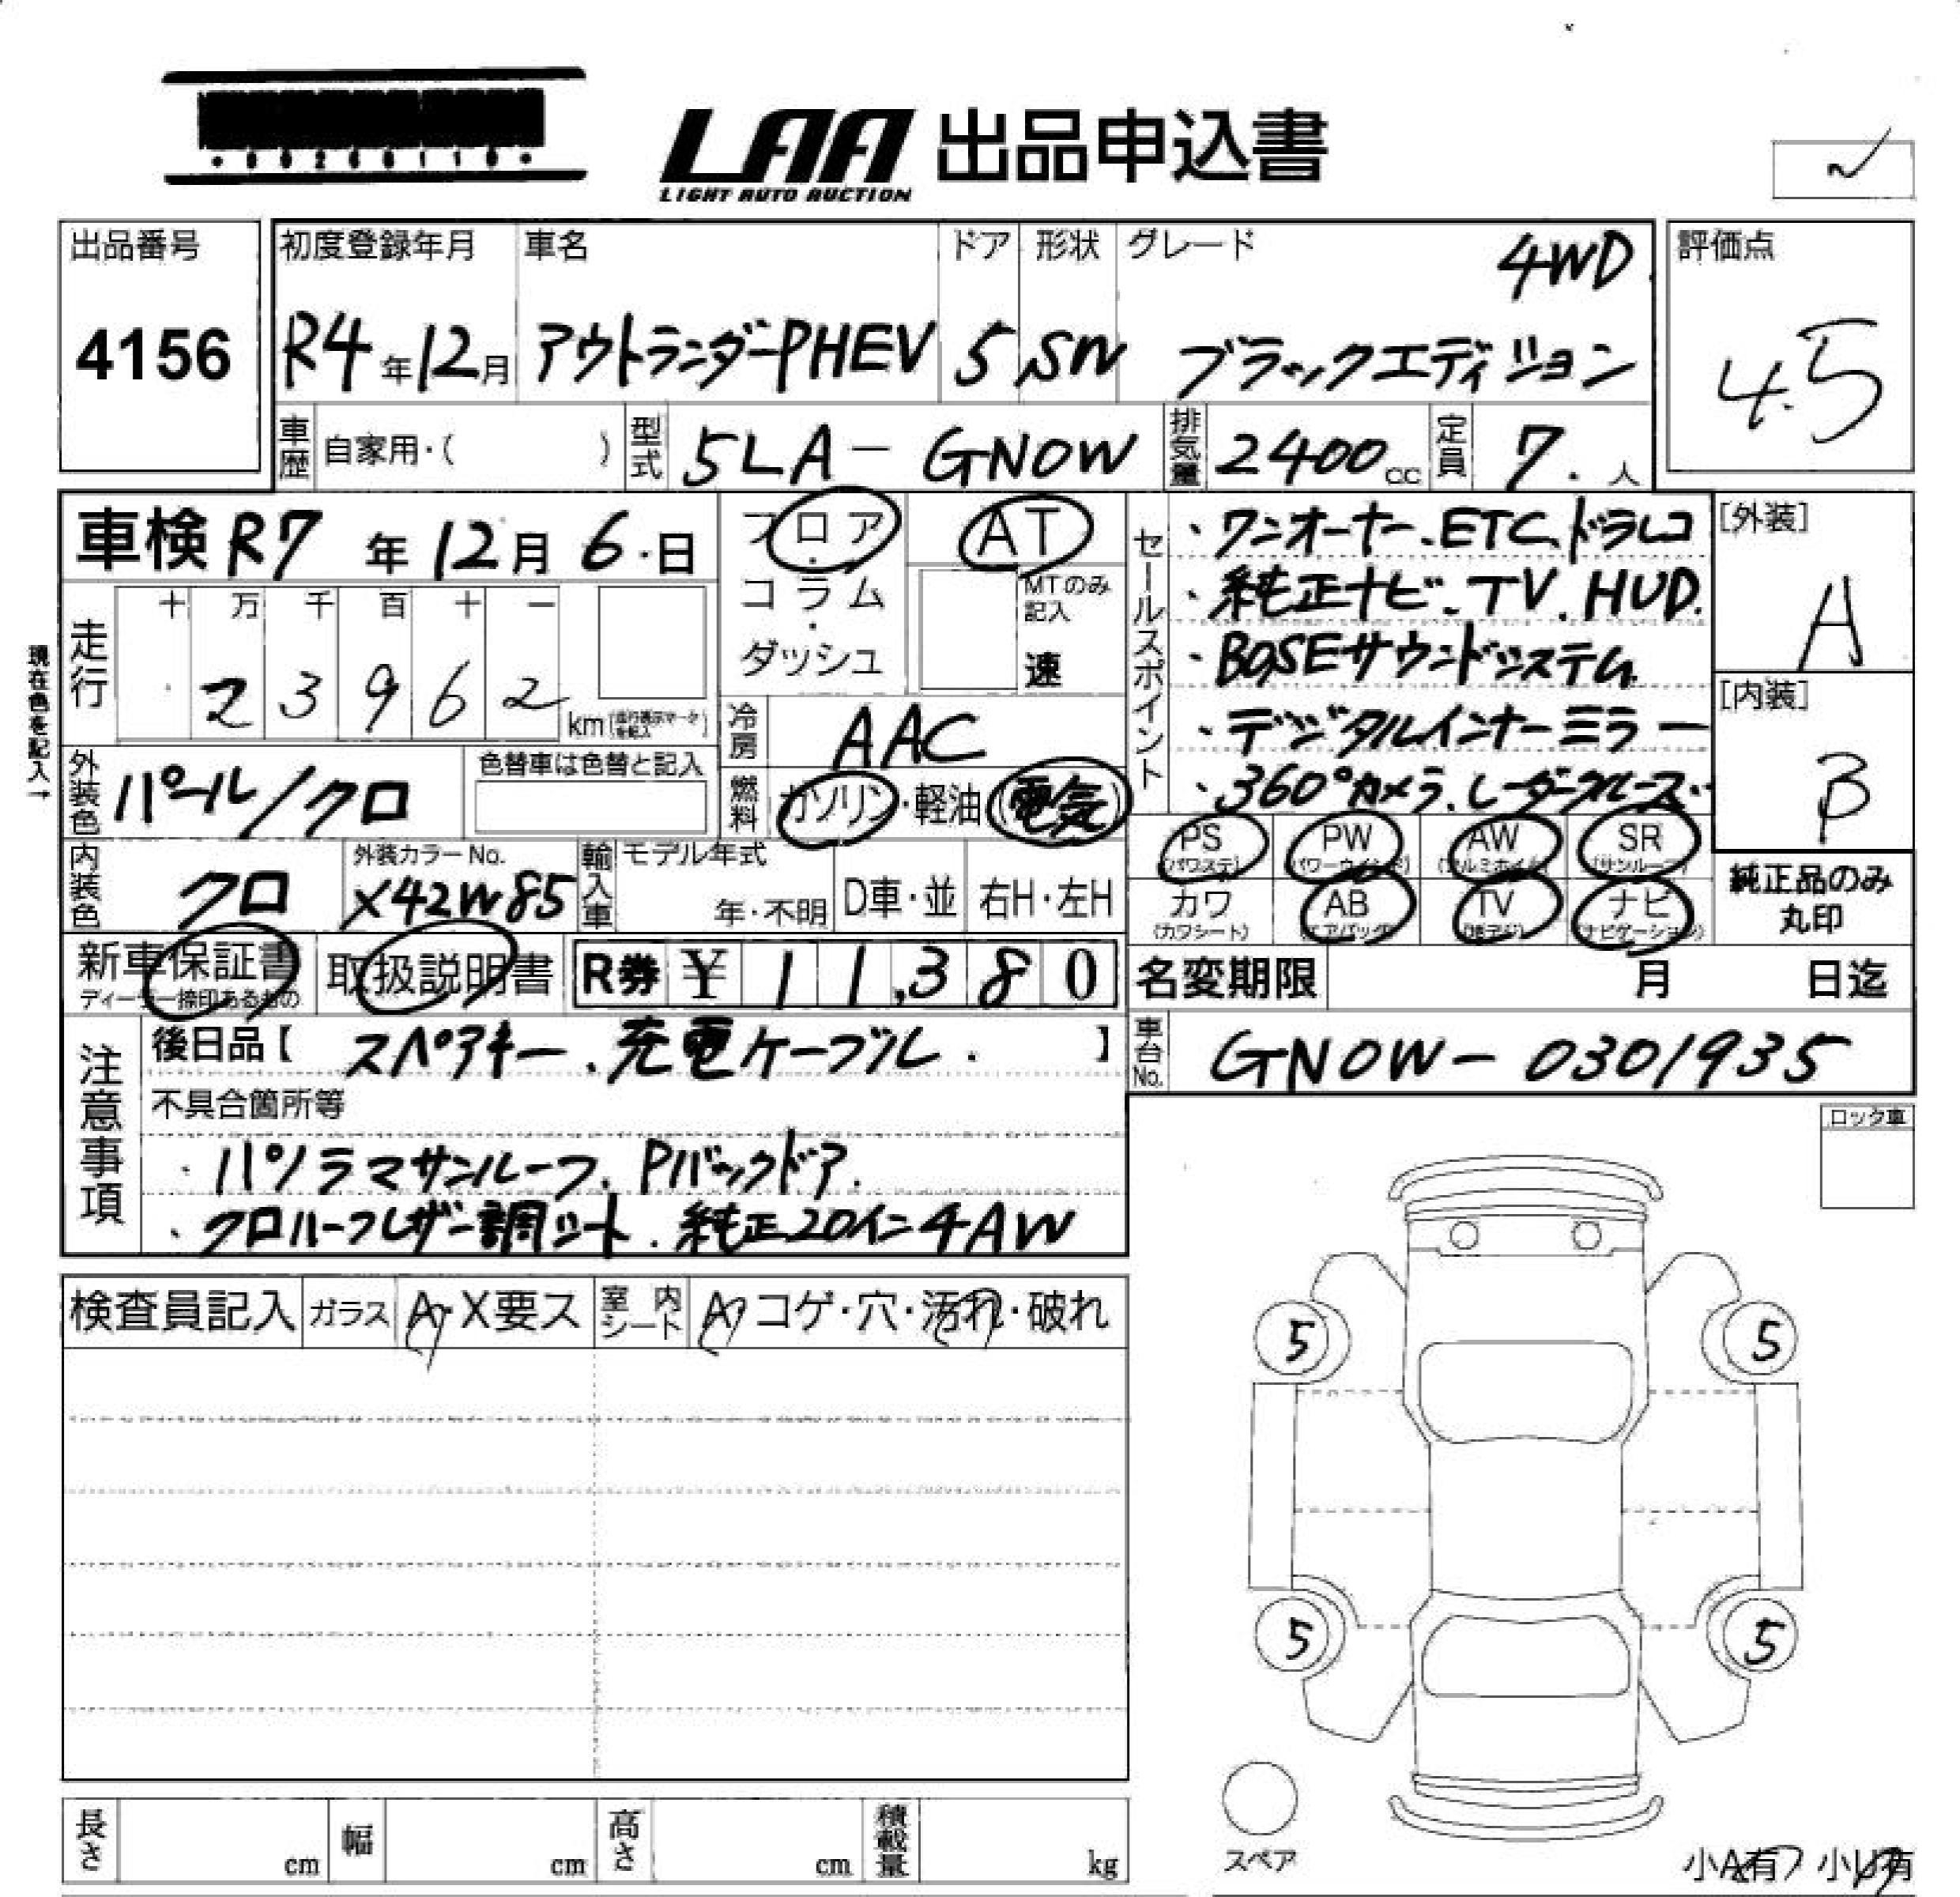 LAA 出品申込書
LIGHT AUTO AUCTION
出品番号
4156
初度登録年月
R4年12月
車名
アウトランダーPHEV
ドア
5
形状
SW
グレード
4WD
ブラックエディション
評価点
4.5
車歴 自家用・( )
型式 5LA-GN0W
排気量 2400cc
定員 7.人
車検 R7年12月6日
フロア・コラム・ダッシュ
AT
MTのみ記入
速
現在色を記入→
走行
十万千百十一
23962 km
冷房 AAC
外装色 パール/クロ
色替車は色替と記入
燃料 ガソリン・軽油・(電気)
内装色 クロ
外装カラーNo.
X42W85
輸入車
モデル年式
年・不明
D車・並
右H・左H
新車保証書
ディーラー捺印あるもの
取扱説明書
R券 ¥11,380
セールスポイント
・ワンオーナー、ETC、ドラレコ
・純正ナビ、TV、HUD.
・BOSEサウンドシステム
・デジタルインナーミラー
・360°カメラ、レーダークルーズ
[外装]
A
[内装]
B
PS (パワステ)
PW (パワーウインド)
AW (アルミホイル)
SR (サンルーフ)
カワ (カワシート)
AB (エアバック)
TV (地デジ)
ナビ (ナビゲーション)
純正品のみ
丸印
名変期限 月 日迄
車台No. GN0W-0301935
注意事項
後日品【スペアキー、充電ケーブル. 】
不具合箇所等
・パノラマサンルーフ、Pバックドア.
・クロハーフレザー調シート. 純正20インチAW
ロック車
検査員記入
ガラス A・X要ス
室内シート A・コゲ・穴・汚れ・破れ
5 5
5 5
スペア
長さ cm
幅 cm
高さ cm
積載量 kg
小A有 小U有